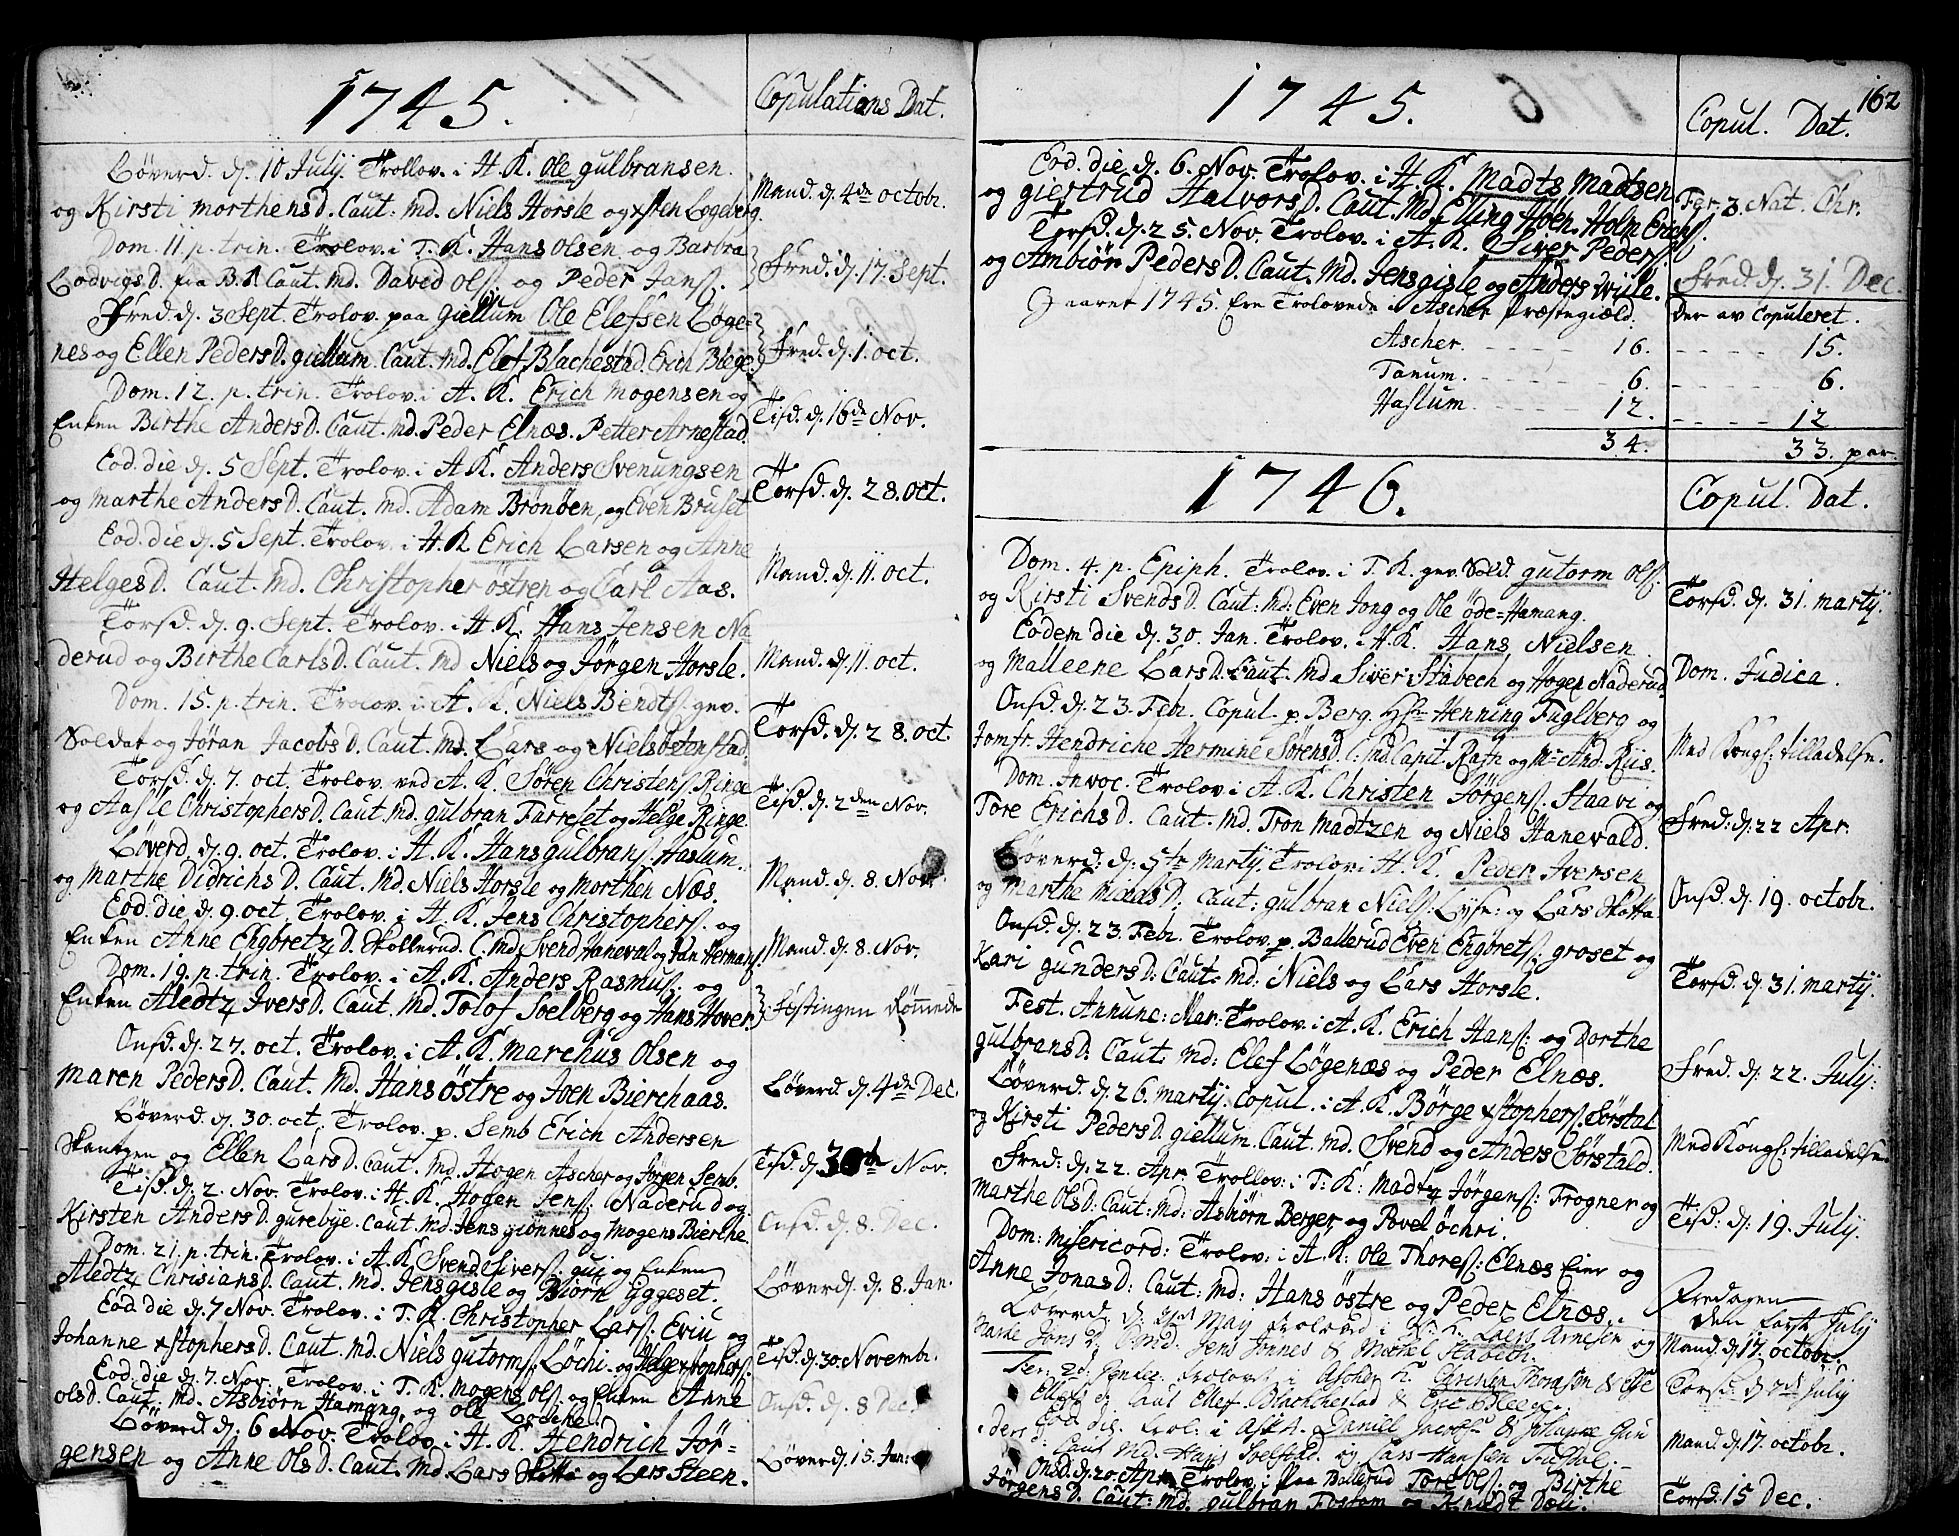 1745.
Copulations Dat.
Løverd. d. 10 July. Trollov. i H. K. Ole gulbransen.
og Kirsti MorthensD. Caut. Md. Niels Horsle og xsten Løgeberg
Mand. d. 4de octobr.
Dom. 11. p. trin. Trolov. i T. K. Hans Olsen og Barbra
LodvigsD. fra B. Caut. Md. David Ols. og Peder Jans.
Fred. d. 17. Sept.
Fred. d. 3 Sept. Trolov. paa giellum Ole Elefsen Løge=
nes og Ellen PedersD. giellum. Caut. Md. Elef Blachestad. Erich Blege.
Fred. d. 1. oct.
Dom. 12. p. trin. Trolov. i A. K. Erich Mogensen og
Enken Birthe AndersD. Caut. Md. Peder Elnæs. Petter Arnestad.
Tisd. d. 16de Nov.
Eod. die d. 5 Sept. Trolov. i A K. Anders Svenungsen
og Marthe AndersD. Caut. Md. Adam Brønøen, og Even Bruset
Torsd. d. 28. Oct.
Eod. die d. 5 Sept. Trolov. i H. K Erich Larsen og Anne
HelgesD. Caut. Md. Christopher østren og Carl Aas.
Mand. d. 11. oct.
Torsd. d. 9. Sept. Trolov. i H. K. Hans Jensen Na
derud og Birthe CarlsD. Caut. Md Niels og Jørgen Horsle.
Mand. d. 11 oct.
Dom. 15. p. trin. Trolov. i A. K. Niels Bendts. gev.
Soldat og Jøran JacobsD. Caut. Md. Lars og Niels betonstad.
Torsd. d. 28. oct.
Torsd. d. 7. oct. Trolov. ved A. K. Søren Christens. Ringe
og Aasle ChristophersD. Caut. Md. gulbran Farreset og Helge Ringe.
Tisd. d. 2den Nov.
Løverd. d. 9. oct. Trolov. i H. K. Hans gulbrans. Haslum.
og Marthe DidrichsD. Caut. Md. Niels Horsle og Morthen Næs.
Mand. d. 8. Nov.
Eod. die d. 9. oct. Trolov. i H. K. Jens Christophers. og
Enken Anne EngbretzD. Skollerud. C. Md Svend Haneval og Jan Hermans.
Mand. d. 8. Nov.
Dom. 19. p. trin. Trolov. i A. K. Anders Rasmus. og
Enken Aledtz IversD. Caut. Md. Tolof Soelberg og Hans Hover.
Høstingen Rømmede
Onsd. d. 27. oct. Trolov. i A. K. Marchus Olsen og
Maren PedersD. Caut. Md. Hans østre og Joen Bierchaas.
Løverd. d. 4de Dec.
Løverd. d. 30. oct. Trolov. p. Semb Erich Andersen
Skentzen og Ellen LarsD. Caut. Md. Hogen Ascher og Jørgen Semb.
Tisd. d. 30t Nov.
Tisd. d. 2. Nov. Trolov. i H. K. Hogen Jens. Naderud og
Kirsten AndersD. gurebye. Caut. Md. Jens giønnes og Mogens Bierche.
Onsd. d. 8. Dec.
Dom. 21. p. trin. Trolov. i A. K Svend Sivers. gui og Enken
Aledtz ChrisiansD. Caut. Md. Jens gisle og Biørn yggeset.
Løverd. d. 8. Jan.
Eod. die d. 7 Nov. Trolov. i T. K. Christopher Lars. Eviu og
Johanne xstophersD. Caut. Md. Niels gutorms. Løchi. og Helge xtophers.
Tisd. d. 30. Novembr.
Eod. die d. 7. Nov. Trolov. i T. K. Mogens Ols. og Enken Anne
olsD. Caut. Md. Asbiørn Hamang, og ole Løcke.
Onsd. d. 8 Dec.
Løverd. d. 6 Nov. Trolov. i H. K. Hendrich Jør=
gensen og Anne OlsD. Caut. Md. Lars Skotta og Lars Steen.
Løverd. 15. Jan:
162
1745.
Copul. Dat.
Eod. die d. 6. Nov. Trolov. i H. K. Madts Madtsen
og giertrud HalvorsD. Caut. Md. Elling Høen. Holm Erichs.
Fer. 3. Nat. Chr.
Torsd. d. 25. Nov. Trolov. i A. K. Siver Peders.
og Ambiør PedersD. Caut. Md. Jens gisle og Anders Wiile.
Fred. d. 31. Dec.
I aaret 1745. Ere Trolovede i Ascher Præstegiæld.
Der av Copuleret.
Ascher. - - - - - 16. - - - - - 15.
Tanum. - - - - - 6. - - - - - 6.
Haslum. - - - - - 12. - - - - - 12
34. 33. par
1746.
Copul. Dat.
Dom. 4. p. Epiph. Trolov. i T. K. gev. Sold. gutorm Ols.
og Kirsti SvendsD. Caut: Md: Even Jong og Ole öde=Hamang.
Torsd. d. 31. Martij.
Eodem die d. 30. Jan. Trolov. i A. K. Hans Nielsen
og Malleene LarsD. Caut. Md Siver Stabech og Hogen Naderud
Dom. Judica.
Onsd. d. 23. Feb. Copul. p. Berg. Hr Henning Fuglberg og
Jomfr. Hendriche Hermine SørensD. C: Md. Capit. Rafn og Mr And. Riis.
Med Kongs: tilladelse.
Dom. Invoc. Trolov. i A. K. Christen Jørgens. Staavi og
Tore ErichsD. Caut. Md. Tron Madtzen og Niels Hanevald.
Fred: d: 22 Apr.
Løverd: d: 5te Martij. Trolov: i H. K. Peder Iversen
og Marthe NielsD. Caut: gulbran Niels. Lyse: og Lars Skotta.
Onsd. d. 19. octobr.
Onsd. d. 23. Feb. Trolov. p. Ballerud Even Engbrets: groset og
Kari gundersD: Caut: Md: Niels og Lars Horsle.
Torsd. d. 31. Martij.
Fest. Annunc: Mar: Trolov. i A. K. Erich Hans: og Dorthe
gulbransD: Caut: Md: Elef Løgenæs og Peder Elnæs.
Fred. d. 22. July:
Løverd. d. 26. Martij. Copul. i A. K. Børge xstophers. Sørstal
og Kirsti PedersD. giellum. Caut. Md. Svend og Anders Sørstald.
Med Kongs: tilladelse.
Fred: d. 22. Apr. Trollov: i T: K: Madtz Jørgens: Frogner og
Marthe OlsD: Caut: Md: Asbiørn Berger og Povel öchri.
Tisd: d: 19. July.
Dom: Misericord: Trolov: i A. K: Ole Thores: Elnæs Eier og
Anne JonasD: Caut: Md: Hans østre og Peder Elnæs.
Fredagen
den første July
Løverd d: May troloved i H. K. Laers Arnesen og
Jens D. Jens Jonnes & Michel Stabech.
Mand. d. 17. octobr.
Fer. 2d: Pentec: trolov. i Ascher K. Carsten Thomsøn
Caut Ellef Blachestad & Eric Bleege.
Torsd. d 7de July
Eod die trol: i Askr. Daniel Jacobs: & Johanne Gun
ders D: Caut Md. Hans Soelstad og Lars Hansen
Mand. d. 17. octobr.
Onsd. d. 20. Apr. Trolov. i Paa Ballerud Tore Ols. og Birthe
JørgensD. Caut: Md. gulbran Fossom og Knudt Dæli.
Torsd. 15 Dec.